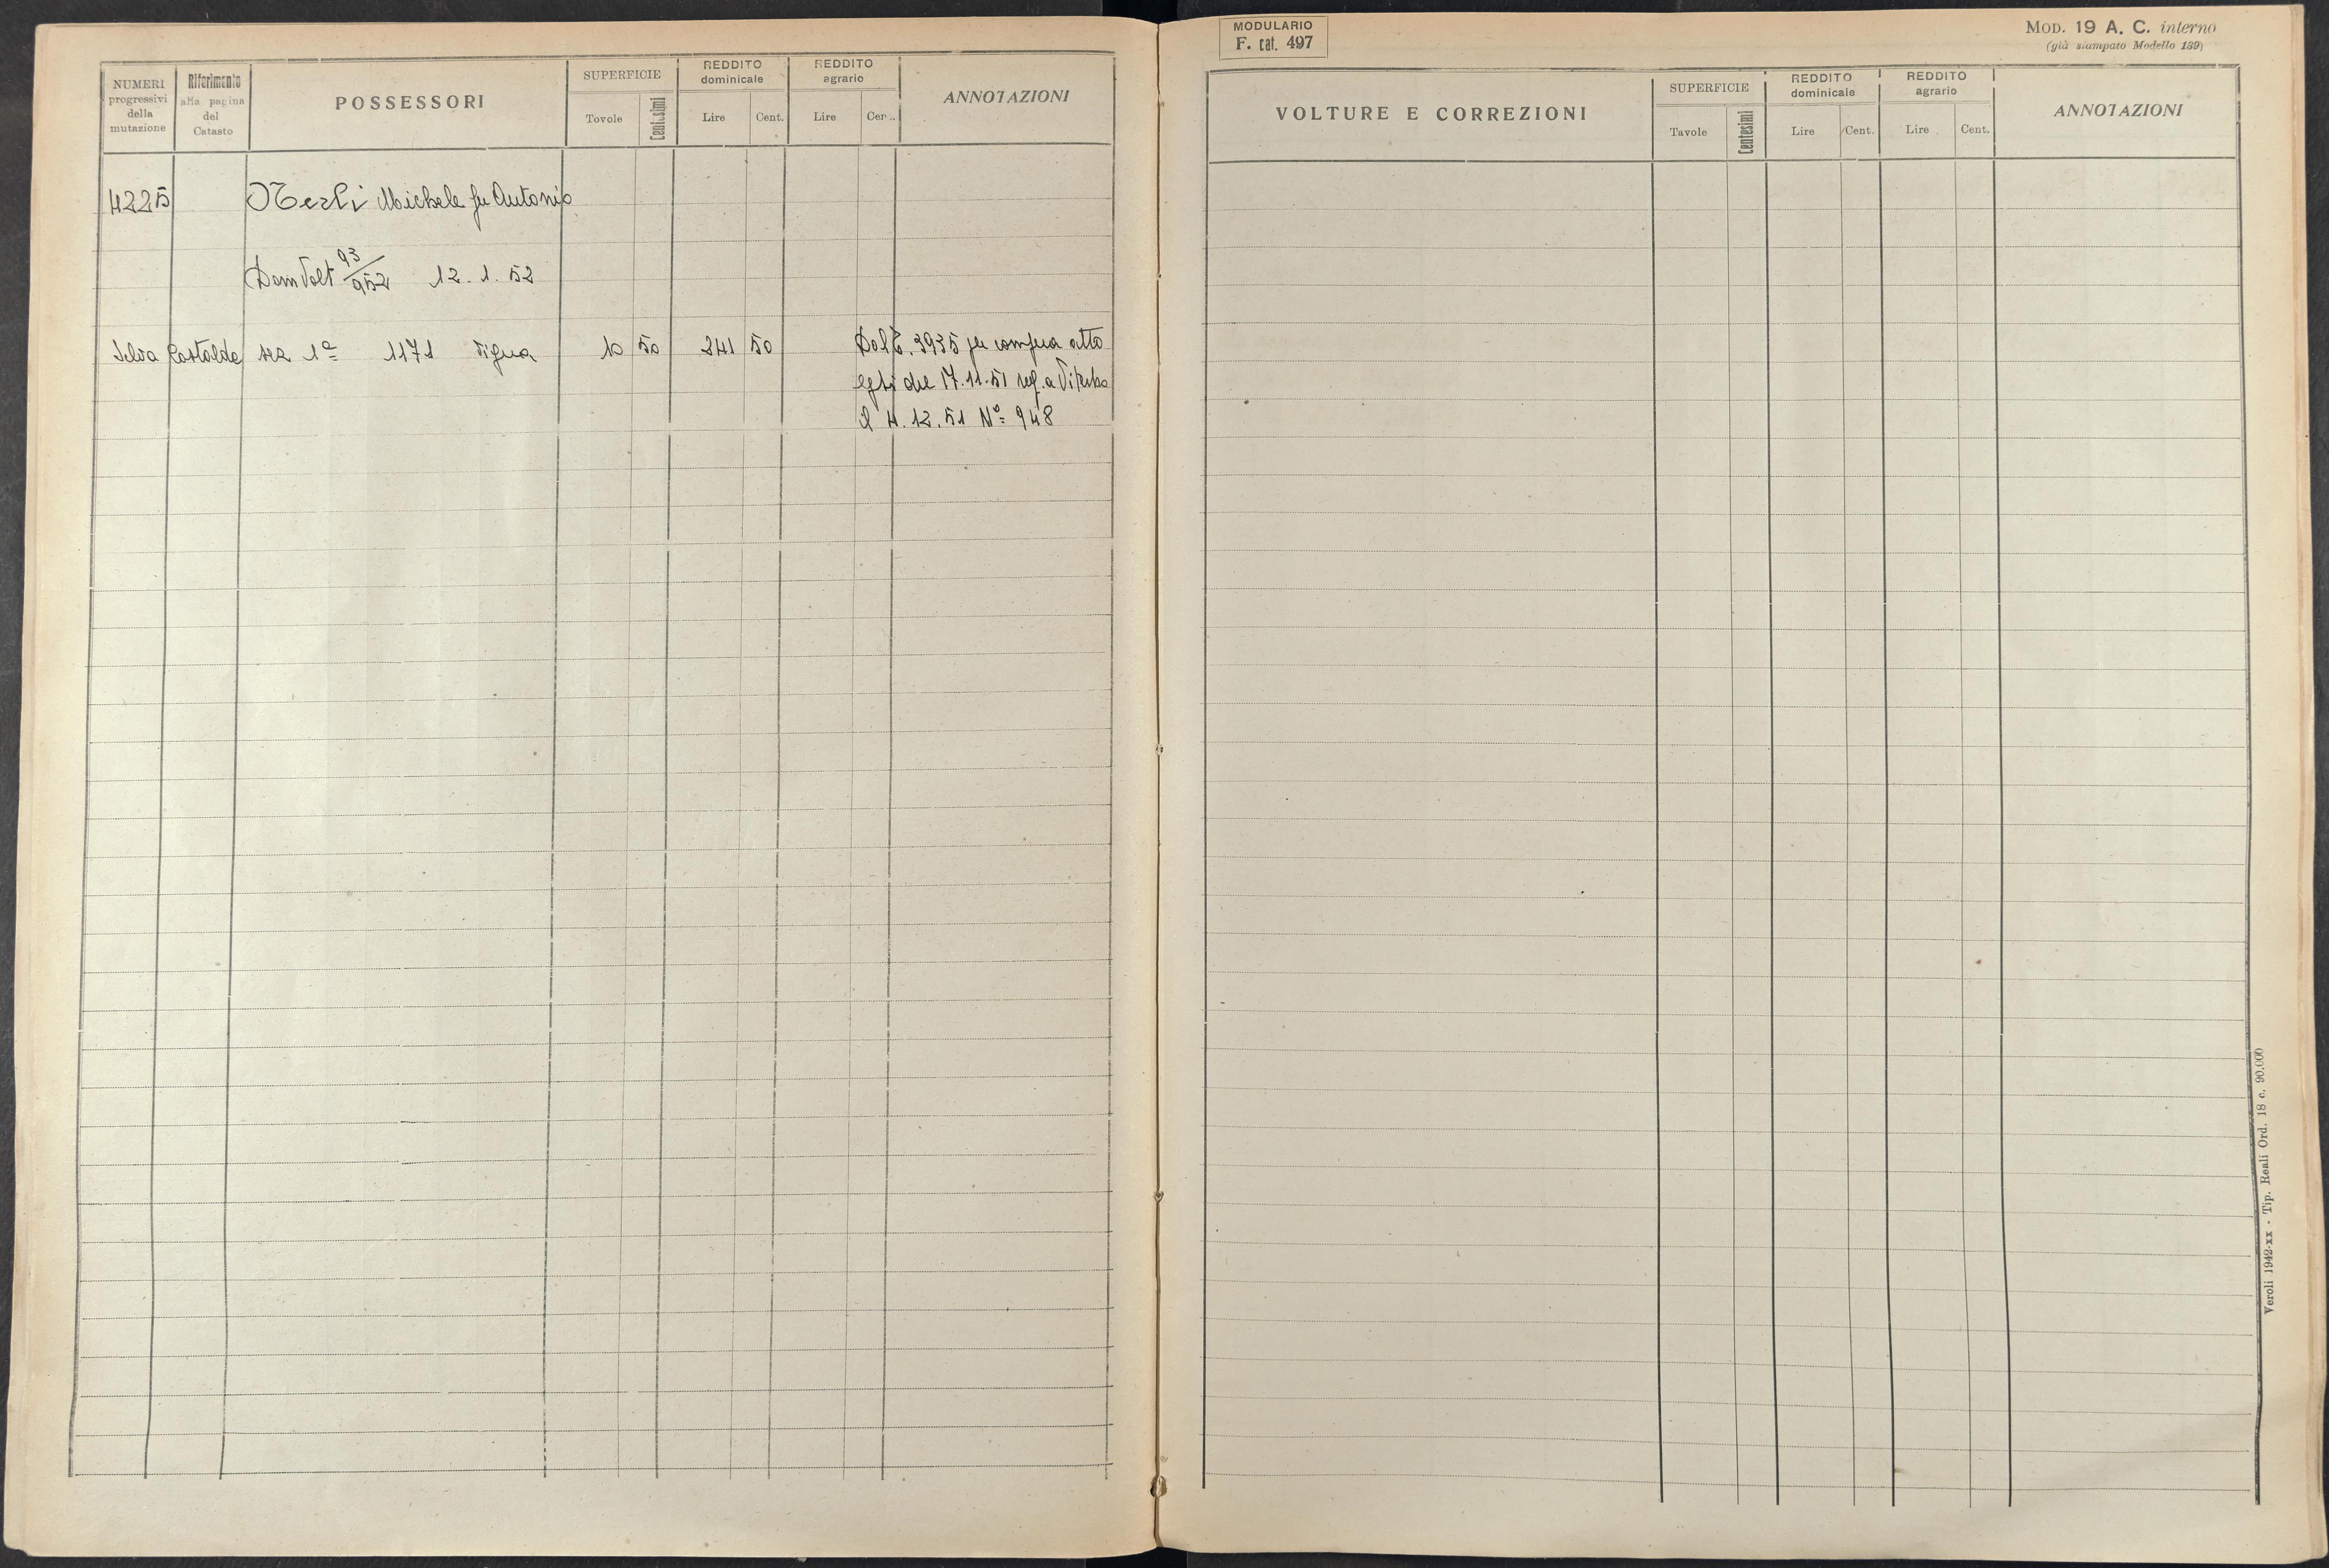 NUMERI progressivi della mutazione
Riferimento alla pagina del Catasto
POSSESSORI
SUPERFICIE
Tavole
Centesimi
REDDITO dominicale
Lire
Cent.
REDDITO agrario
Lire
Cent.
ANNOTAZIONI
4225 Merli Michele fu Antonio
Dom Volt 93/952 12.1.52
Selva Castalda sez 1ª 1171 Vigna 10 50 241 50 Dal C. 3935 per compra atto
del 17.11.51 reg. a Viterbo
il 4.12.51 Nº 948
MODULARIO
F. cat. 497
MOD. 19 A. C. interno
(già stampato Modello 139)
VOLTURE E CORREZIONI
SUPERFICIE
Tavole
Centesimi
REDDITO dominicale
Lire
Cent.
REDDITO agrario
Lire
Cent.
ANNOTAZIONI
Veroli 1942-XX - Tip. Reali Ord. 18 c. 90.000